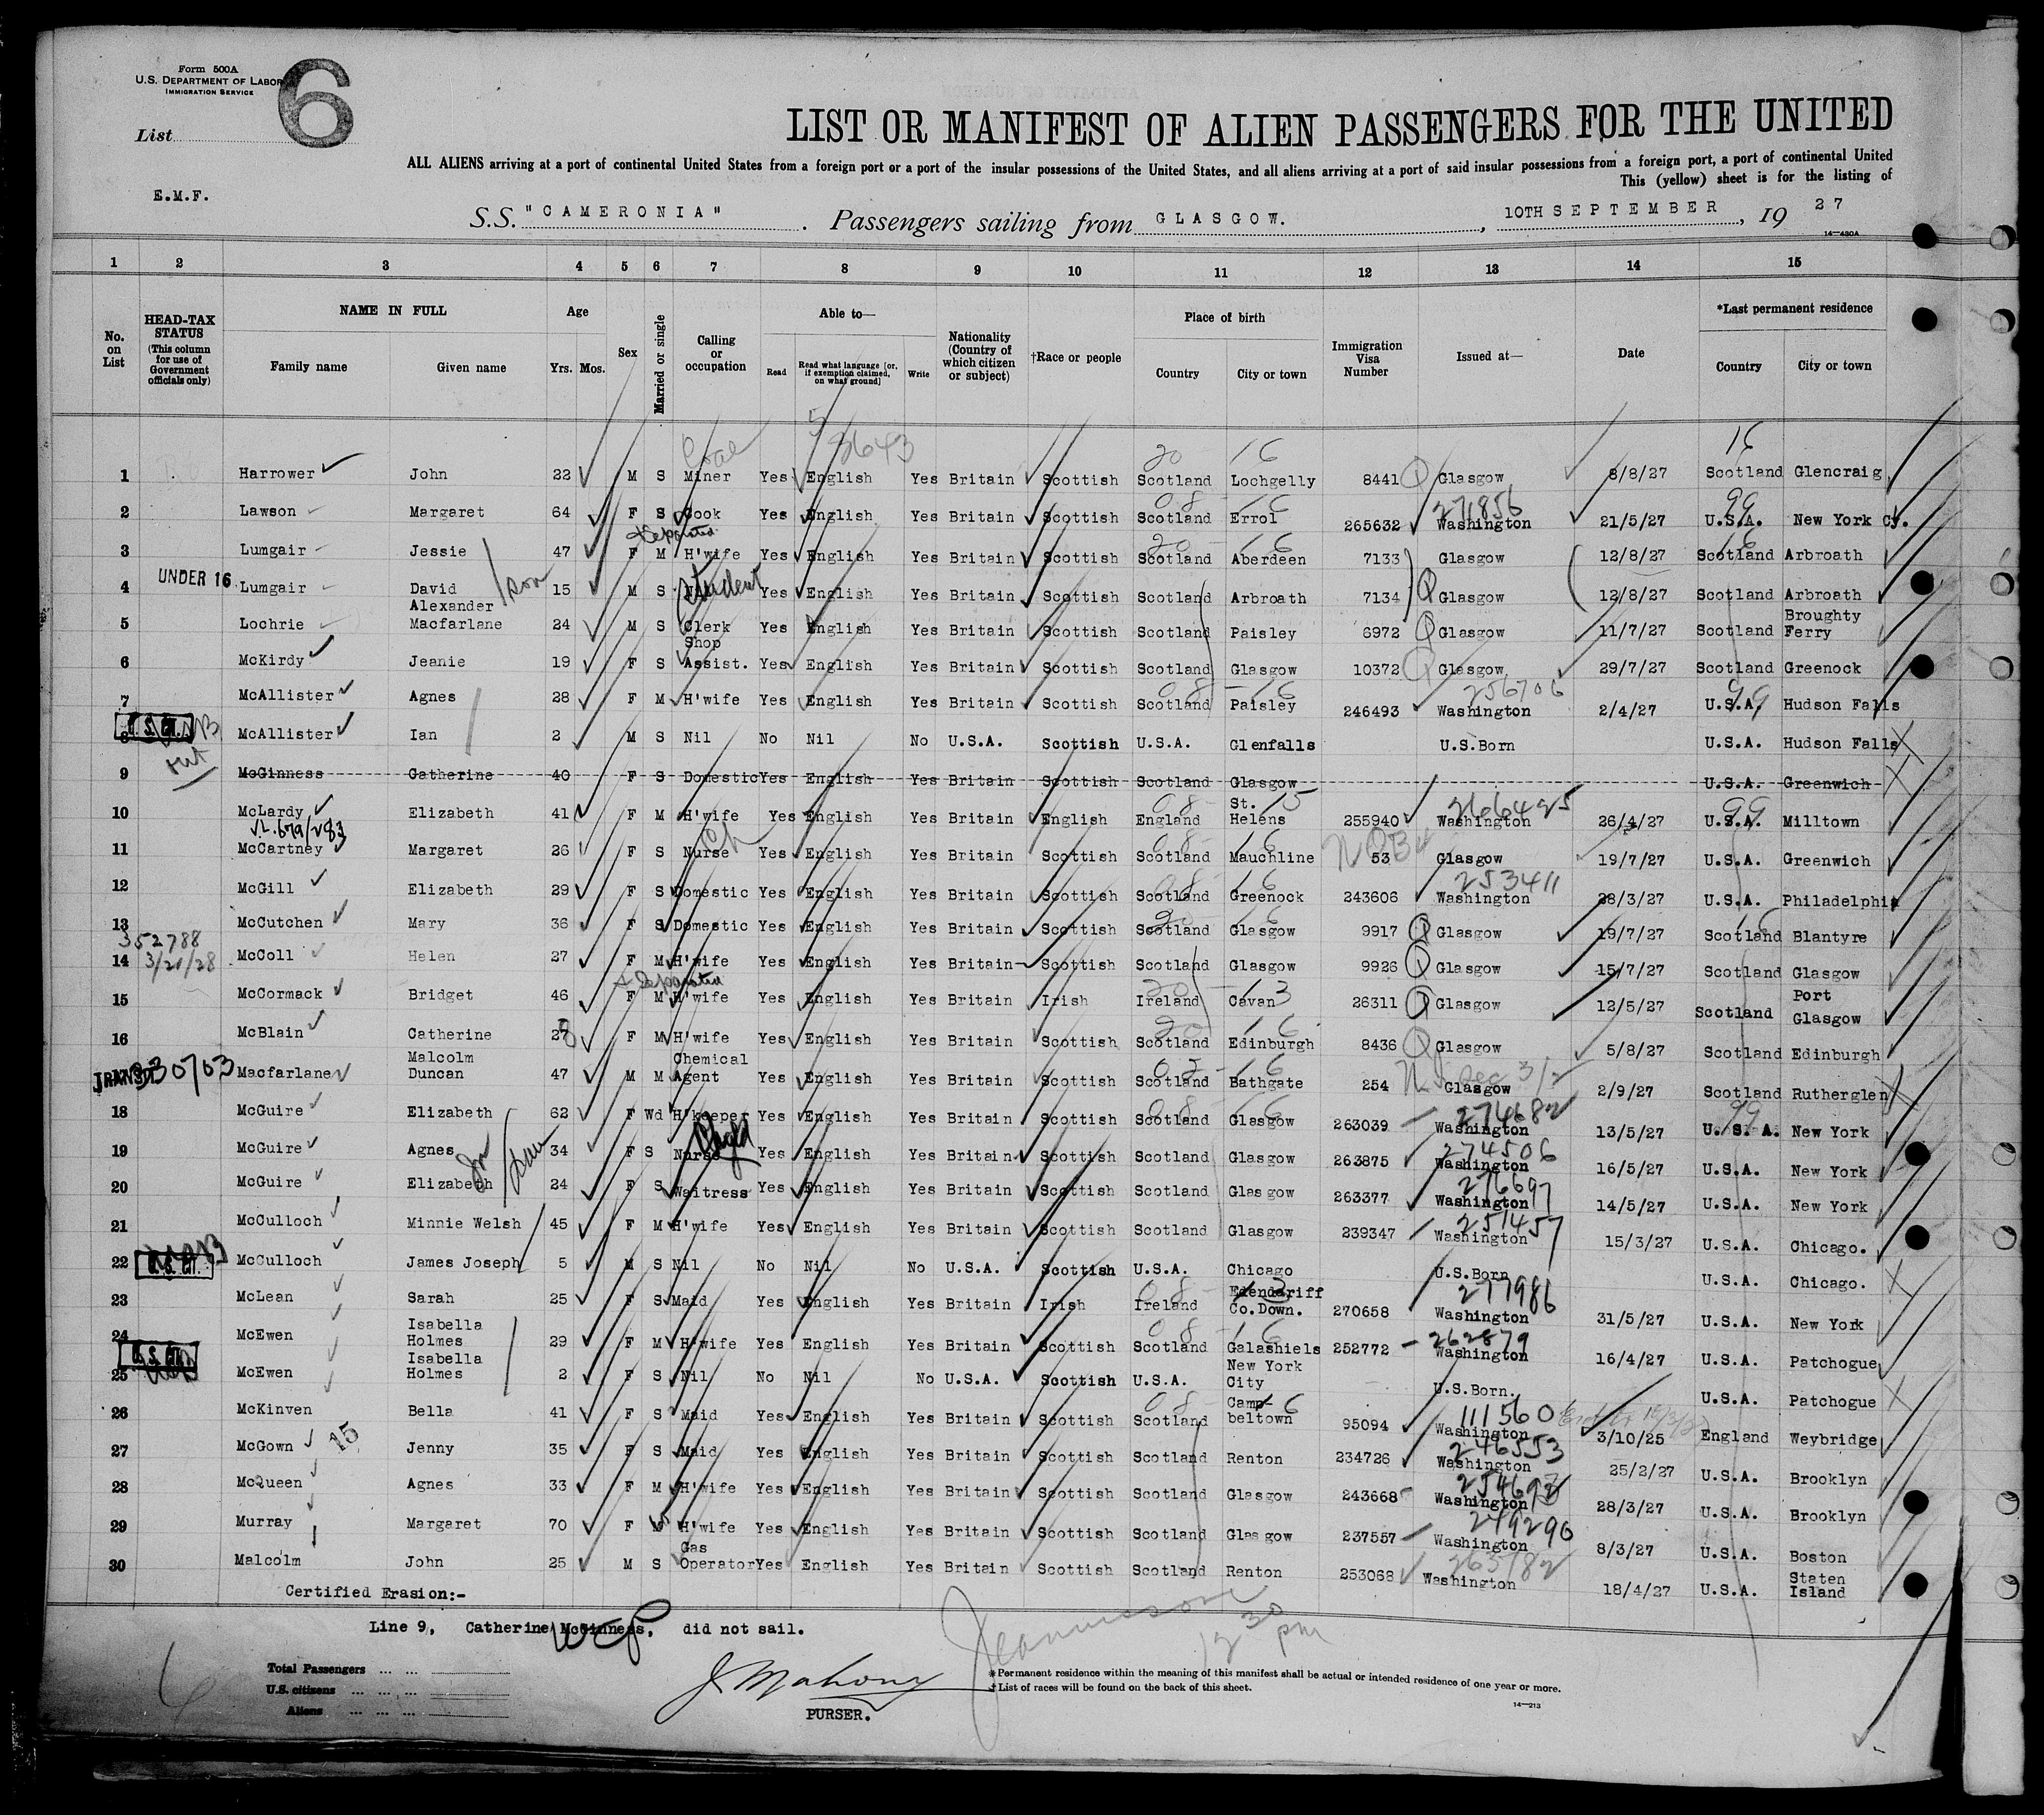 Form 500A
U.S. DEPARTMENT OF LABOR
IMMIGRATION SERVICE
6
List
LIST OR MANIFEST OF ALIEN PASSENGERS FOR THE UNITED
ALL ALIENS arriving at a port of continental United States from a foreign port or a port of the insular possessions of the United States, and all aliens arriving at a port of said insular possessions from a foreign port, a port of continental United
This (yellow) sheet is for the listing of
E.M.F.
S.S. "CAMERONIA". Passengers sailing from GLASGOW., 10TH SEPTEMBER, 19 27
14—430A
1 2 3 4 5 6 7 8 9 10 11 12 13 14 15
No. on List
HEAD-TAX STATUS (This column for use of Government officials only)
NAME IN FULL
Family name Given name
Age
Yrs. Mos.
Sex
Married or single
Calling or occupation
Able to—
Read Read what language [or, if exemption claimed, on what ground] Write
Nationality (Country of which citizen or subject)
†Race or people
Place of birth
Country City or town
Immigration Visa Number
Issued at—
Date
*Last permanent residence
Country City or town
Coal 5 3643 20 16 16
1 Harrower John 22 M S Miner Yes English Yes Britain Scottish Scotland Lochgelly 8441 Glasgow 8/8/27 Scotland Glencraig
08 - 16 271856 99
2 Lawson Margaret 64 F S Cook Yes English Yes Britain Scottish Scotland Errol 265632 Washington 21/5/27 U.S.A. New York Cy.
Separated 20 - 16 16
3 Lumgair Jessie 47 F M H'wife Yes English Yes Britain Scottish Scotland Aberdeen 7133 Glasgow 12/8/27 Scotland Arbroath
UNDER 16 son Student
4 Lumgair David 15 M S Nil Yes English Yes Britain Scottish Scotland Arbroath 7134 Glasgow 12/8/27 Scotland Arbroath
5 Lochrie Alexander Macfarlane 24 M S Clerk Yes English Yes Britain Scottish Scotland Paisley 6972 Glasgow 11/7/27 Scotland Broughty Ferry
6 McKirdy Jeanie 19 F S Shop Assist. Yes English Yes Britain Scottish Scotland Glasgow 10372 Glasgow 29/7/27 Scotland Greenock
08 - 16 256706 99
7 McAllister Agnes 28 F M H'wife Yes English Yes Britain Scottish Scotland Paisley 246493 Washington 2/4/27 U.S.A. Hudson Falls
U.S. CIT.
8 McAllister Ian 2 M S Nil No Nil No U.S.A. Scottish U.S.A. Glenfalls U.S.Born U.S.A. Hudson Falls
9 McGinness Catherine 40 F S Domestic Yes English Yes Britain Scottish Scotland Glasgow U.S.A. Greenwich
08 - 15 266425 99
10 McLardy Elizabeth 41 F M H'wife Yes English Yes Britain English England St. Helens 255940 Washington 26/4/27 U.S.A. Milltown
V.L. 679/283 Ch 08 - 16
11 McCartney Margaret 26 F S Nurse Yes English Yes Britain Scottish Scotland Mauchline 53 Glasgow 19/7/27 U.S.A. Greenwich
08 - 16 253411
12 McGill Elizabeth 29 F S Domestic Yes English Yes Britain Scottish Scotland Greenock 243606 Washington 28/3/27 U.S.A. Philadelphia
20 - 16 16
13 McCutchen Mary 36 F S Domestic Yes English Yes Britain Scottish Scotland Glasgow 9917 Glasgow 19/7/27 Scotland Blantyre
352788
3/21/28
14 McColl Helen 27 F M H'wife Yes English Yes Britain Scottish Scotland Glasgow 9926 Glasgow 15/7/27 Scotland Glasgow
Separated 20 3
15 McCormack Bridget 46 F M H'wife Yes English Yes Britain Irish Ireland Cavan 26311 Glasgow 12/5/27 Scotland Port Glasgow
20 - 16
16 McBlain Catherine 27 F M H'wife Yes English Yes Britain Scottish Scotland Edinburgh 8436 Glasgow 5/8/27 Scotland Edinburgh
TRANSIT 330703
17 Macfarlane Malcolm Duncan 47 M M Chemical Agent Yes English Yes Britain Scottish Scotland Bathgate 254 Glasgow 2/9/27 Scotland Rutherglen
08 - 16 274682 99
18 McGuire Elizabeth 62 F Wd H'keeper Yes English Yes Britain Scottish Scotland Glasgow 263039 Washington 13/5/27 U.S.A. New York
Child 274506
19 McGuire Agnes 34 F S Nurse Yes English Yes Britain Scottish Scotland Glasgow 263875 Washington 16/5/27 U.S.A. New York
276697
20 McGuire Elizabeth 24 F S Waitress Yes English Yes Britain Scottish Scotland Glasgow 263377 Washington 14/5/27 U.S.A. New York
251457
21 McCulloch Minnie Welsh 45 F M H'wife Yes English Yes Britain Scottish Scotland Glasgow 239347 Washington 15/3/27 U.S.A. Chicago.
U.S. CIT.
22 McCulloch James Joseph 5 M S Nil No Nil No U.S.A. Scottish U.S.A. Chicago U.S.Born U.S.A. Chicago.
08 - 3 277986
23 McLean Sarah 25 F S Maid Yes English Yes Britain Irish Ireland Edendariff Co.Down. 270658 Washington 31/5/27 U.S.A. New York
08 - 16 262879
24 McEwen Isabella Holmes 29 F M H'wife Yes English Yes Britain Scottish Scotland Galashiels 252772 Washington 16/4/27 U.S.A. Patchogue
U.S. CIT.
25 McEwen Isabella Holmes 2 F S Nil No Nil No U.S.A. Scottish U.S.A. New York City U.S.Born. U.S.A. Patchogue
08 - 6 111560
26 McKinven Bella 41 F S Maid Yes English Yes Britain Scottish Scotland Campbeltown 95094 Washington 3/10/25 England Weybridge
15 246553
27 McGown Jenny 35 F S Maid Yes English Yes Britain Scottish Scotland Renton 234726 Washington 25/2/27 U.S.A. Brooklyn
28 McQueen Agnes 33 F M H'wife Yes English Yes Britain Scottish Scotland Glasgow 243668 Washington 28/3/27 U.S.A. Brooklyn
249290
29 Murray Margaret 70 F H'wife Yes English Yes Britain Scottish Scotland Glasgow 237557 Washington 8/3/27 U.S.A. Boston
263782
30 Malcolm John 25 M S Gas Operator Yes English Yes Britain Scottish Scotland Renton 253068 Washington 18/4/27 U.S.A. Staten Island
Certified Erasion:-
Line 9, Catherine McGinness, did not sail.
12 30 pm
6
Total Passengers
U.S. citizens
Aliens
J Mahony
PURSER.
*Permanent residence within the meaning of this manifest shall be actual or intended residence of one year or more.
†List of races will be found on the back of this sheet.
14—213